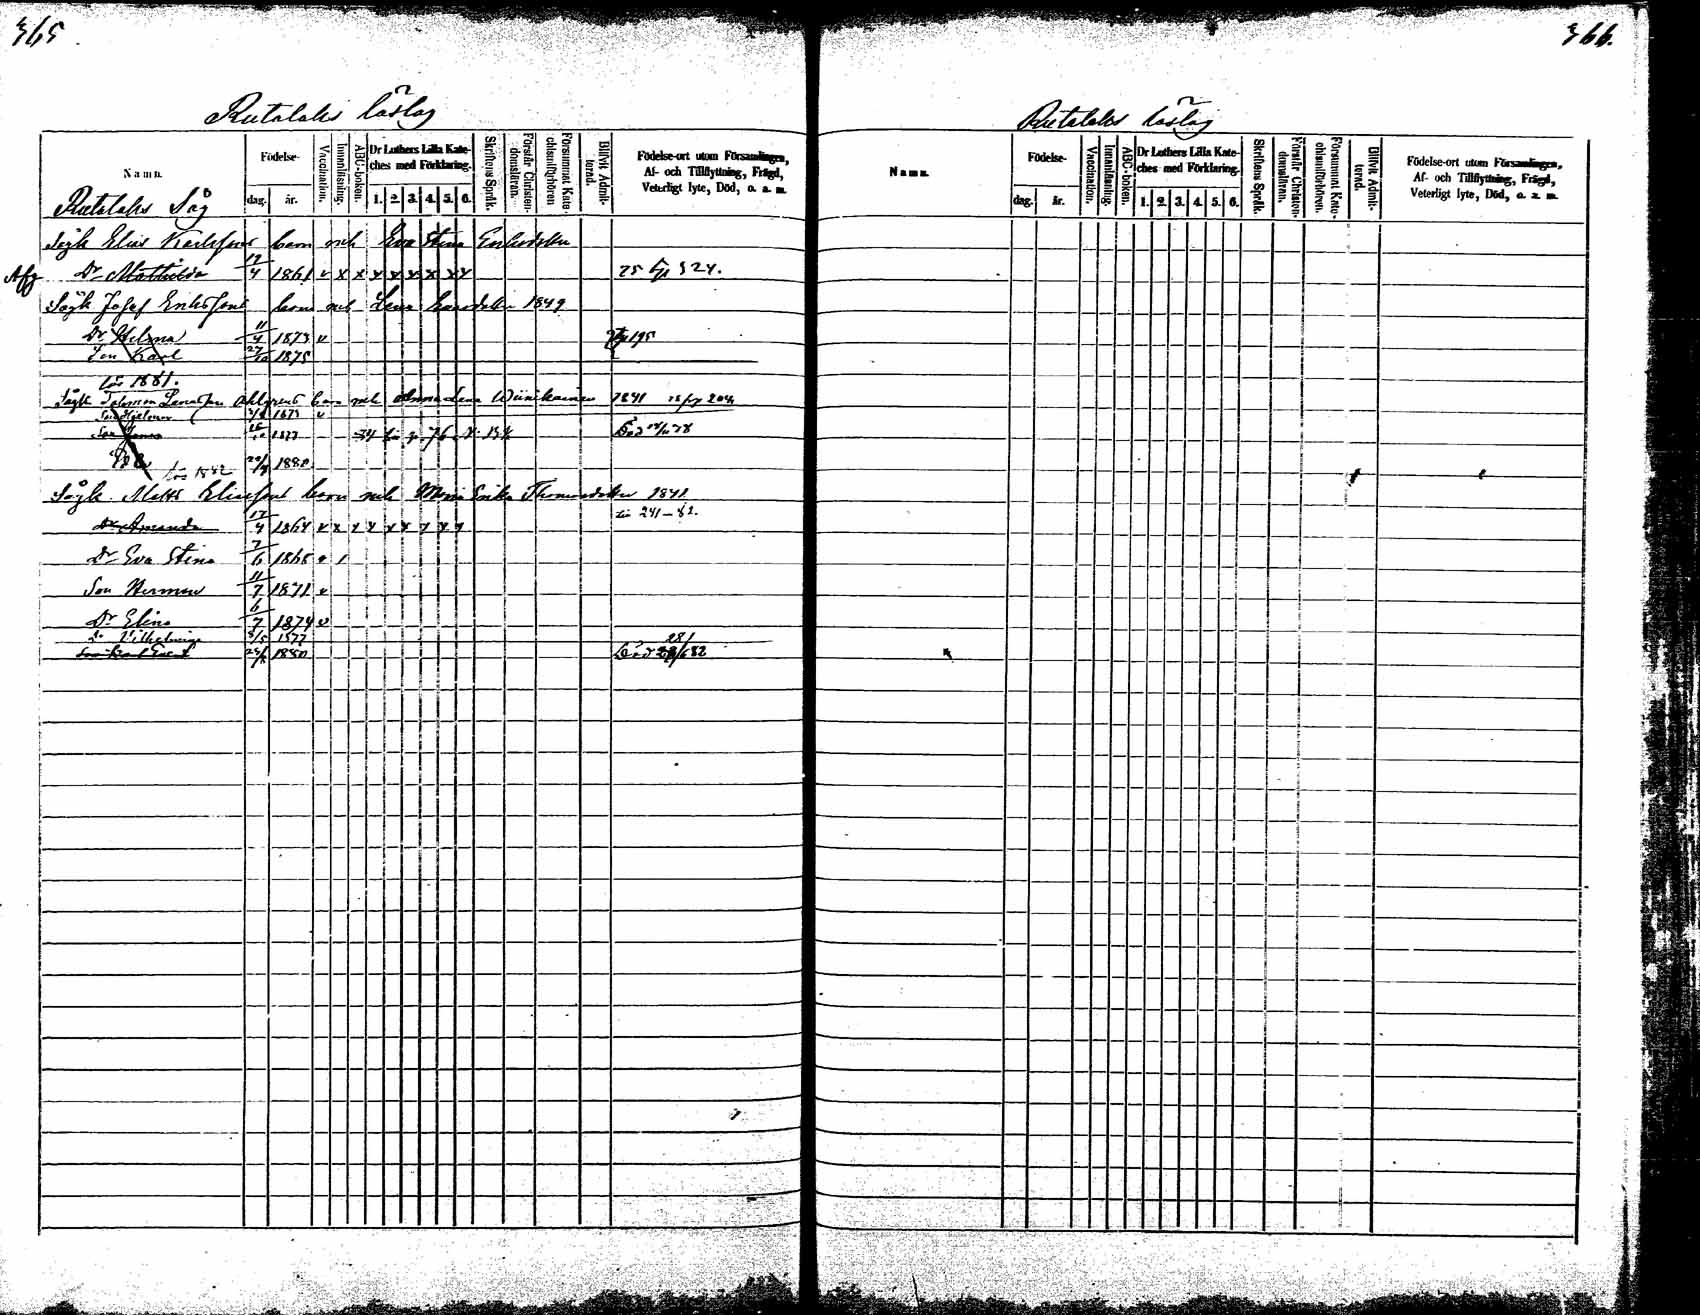 365
Rutalaks låslag
Namn.
Födelse-
dag.
år.
Vaccination.
Innanläsning.
ABC-boken.
Dr Luthers Lilla Kate-
ches med Förklaring.
1. 2. 3. 4. 5. 6.
Skriftens Språk.
Förstår Christen-
domsläran.
Försummat Kate-
chismiförhören
Blifvit Admit-
terad.
Födelse-ort utom Församlingen,
Af- och Tillflyttning, Frägd,
Veterligt lyte, Död, o. s. m.
Rutalaks Såg
Sågk Elias Karlsson barn med Eva Stina
Afg Dr Mathilda 12/4 1861 v x x x x x x x x 324.
Sågk Josef Eriksson barn med Lena 1849
Dr Helena 11/4 1873 v 195
Son Karl 27/10 1875
1881.
Sågk Salomon Ahlgrens barn med Anna Lena Wiinikainen 1841
Son Hjalmar 1873 v
Son 1877 Död 78
22/7 1880
1882
Sågk Matts Eliasson barn med Maria Erika Thomasdotter 1841
Dr Amanda 12/4 1864 v x x x x x x x x 241-82.
Dr Eva Stina 7/6 1868 v 1
Son Herman 11/7 1871 v
Dr Elina 6/7 1874 v
Dr Vilhelmina 8/5 1877
Son Karl 1880 Död 82
366.
Rutalaks låslag
Namn.
Födelse-
dag.
år.
Vaccination.
Innanläsning.
ABC-boken.
Dr Luthers Lilla Kate-
ches med Förklaring.
1. 2. 3. 4. 5. 6.
Skriftens Språk.
Förstår Christen-
domsläran.
Försummat Kate-
chismiförhören.
Blifvit Admit-
terad.
Födelse-ort utom Församlingen,
Af- och Tillflyttning, Frägd,
Veterligt lyte, Död, o. s. m.